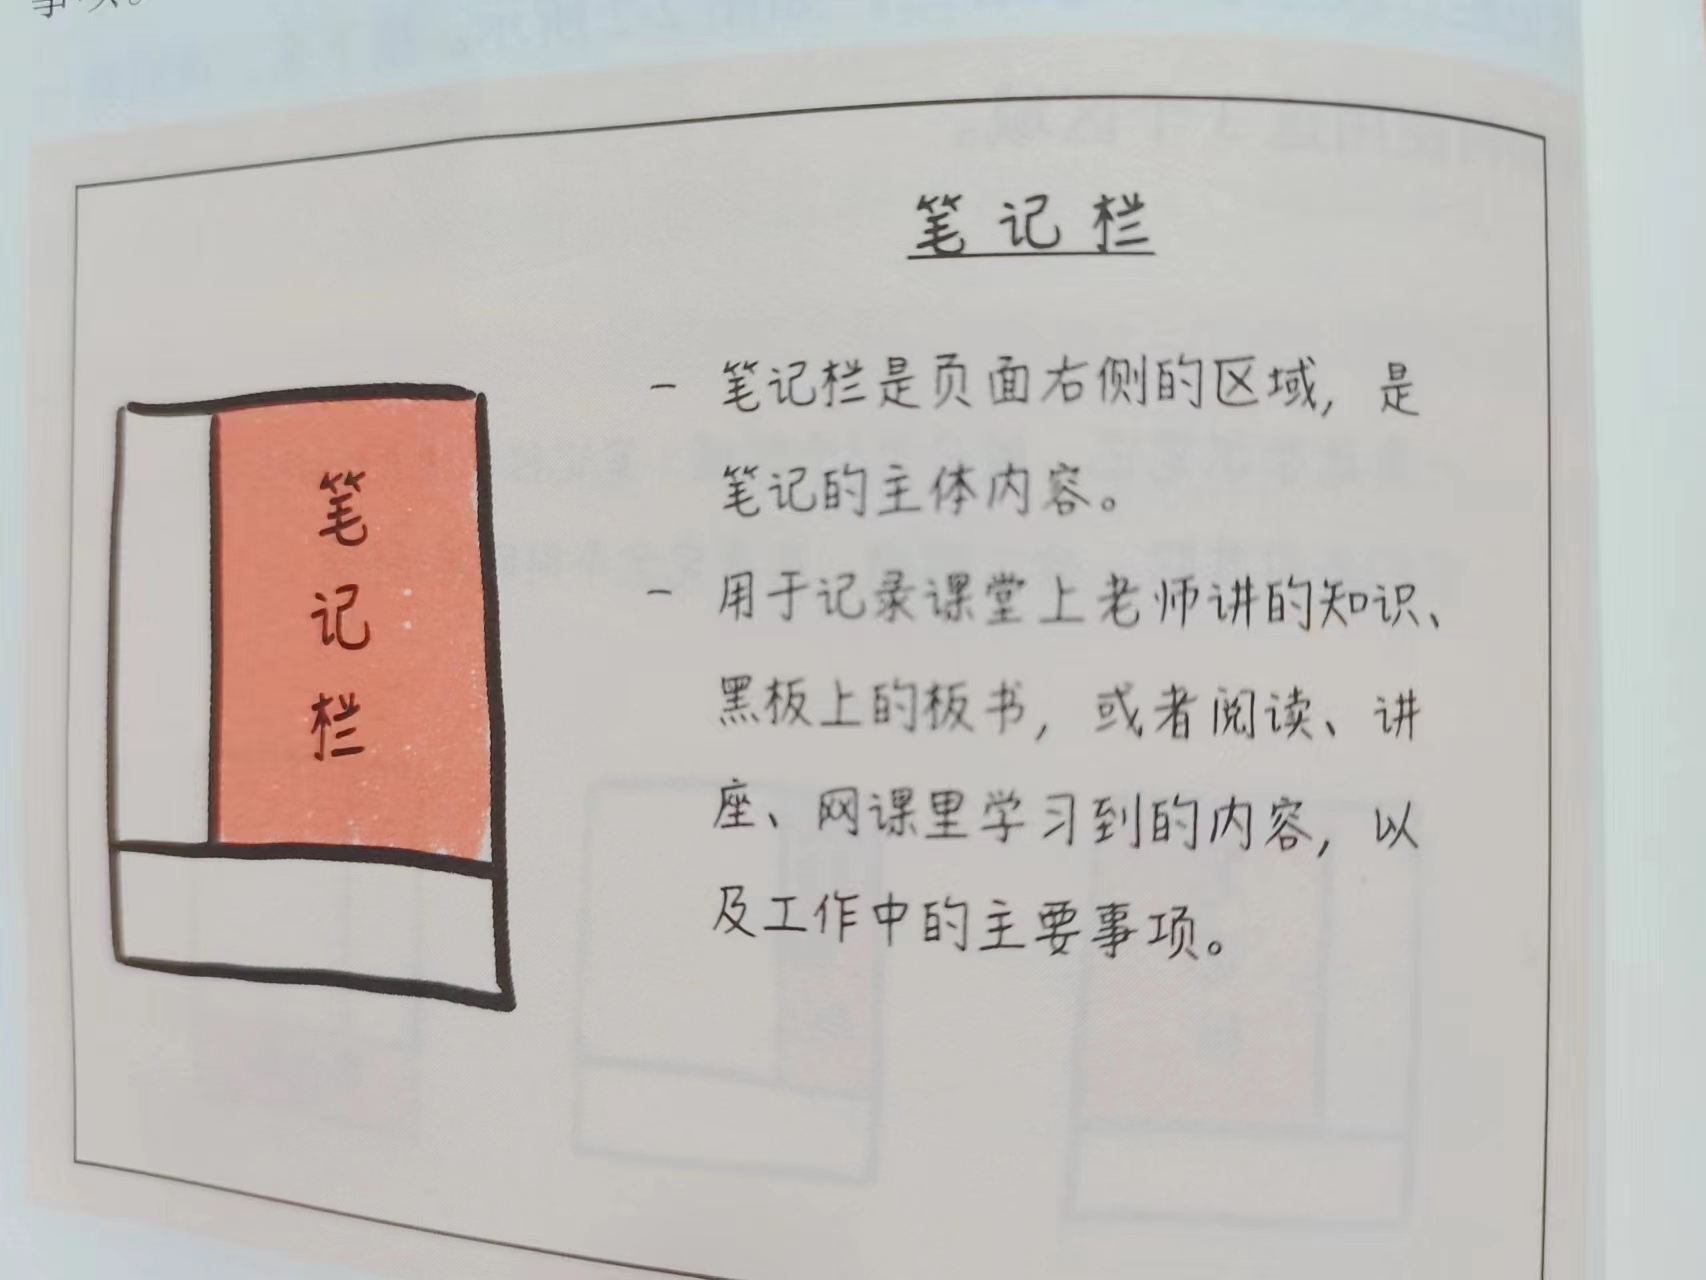 事项。
笔记栏
笔
记
栏
- 笔记栏是页面右侧的区域，是
笔记的主体内容。
- 用于记录课堂上老师讲的知识、
黑板上的板书，或者阅读、讲
座、网课里学习到的内容，以
及工作中的主要事项。